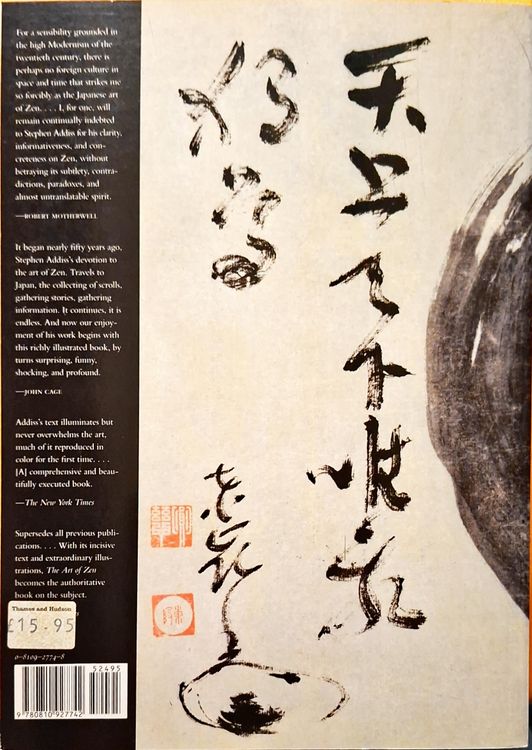 For a sensibility grounded in
the high Modernism of the
twentieth century, there is
perhaps no foreign culture in
space and time that strikes me
so forcibly as the Japanese art
of Zen. . . . I, for one, will
remain continually indebted
to Stephen Addiss for his clarity,
informativeness, and con-
creteness on Zen, without
betraying its subtlety, contra-
dictions, paradoxes, and
almost untranslatable spirit.
—ROBERT MOTHERWELL
It began nearly fifty years ago,
Stephen Addiss's devotion to
the art of Zen. Travels to
Japan, the collecting of scrolls,
gathering stories, gathering
information. It continues, it is
endless. And now our enjoy-
ment of his work begins with
this richly illustrated book, by
turns surprising, funny,
shocking, and profound.
—JOHN CAGE
Addiss's text illuminates but
never overwhelms the art,
much of it reproduced in
color for the first time. . . .
[A] comprehensive and beau-
tifully executed book.
—The New York Times
Supersedes all previous publi-
cations. . . . With its incisive
text and extraordinary illus-
trations, The Art of Zen
becomes the authoritative
book on the subject.
Thames and Hudson
£15.95
0-8109-2774-8
52495
9 780810 927742
天上天下唯我
獨尊